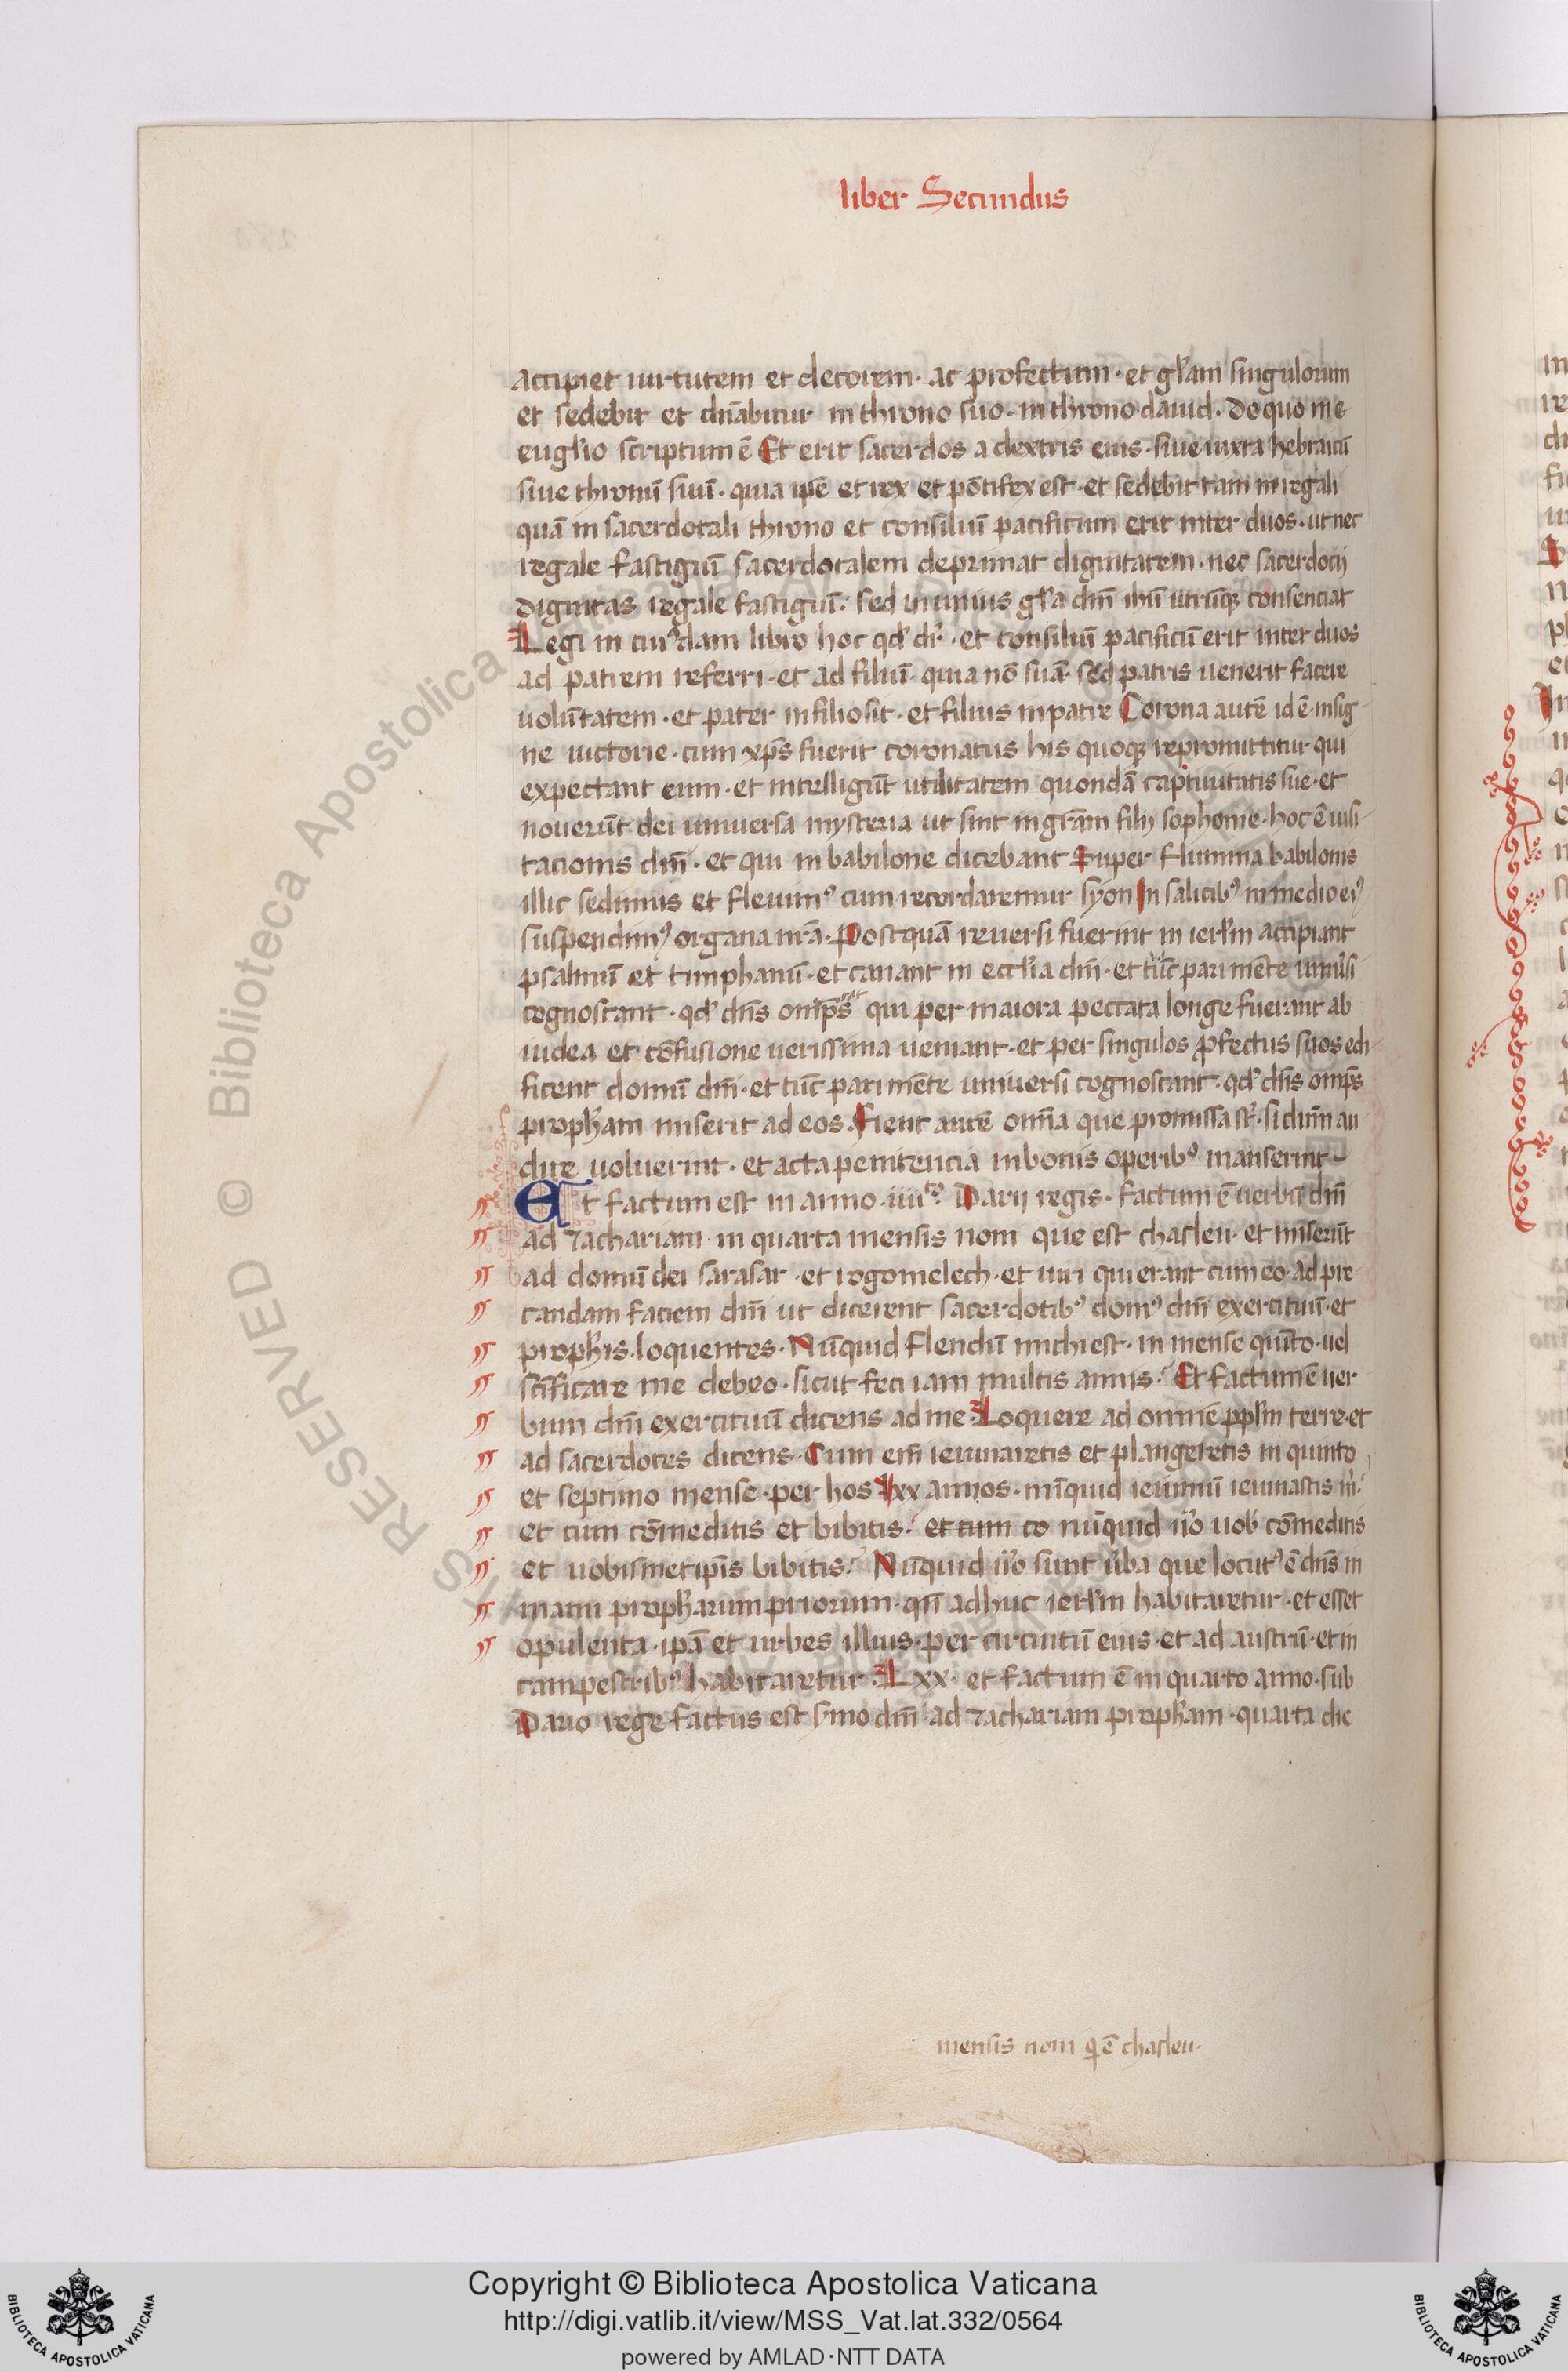 liber Secundus
accipiet uirtutem et decorem · ac profectum · et gl'am singulorum
et sedebit et dn̄abitur in throno suo · in throno dauid · de quo in e
eugl'io scriptum ē Et erit sacerdos a dextris eius · siue iuxta hebraicū
siue thronū suū · quia ipē et rex et pōtifex est · et sedebit tam in regali
quā in sacerdotali throno et consiliū pacificum erit inter duos · ut nec
regale fastigiū sacerdotalem deprimat dignitatem · nec sacerdocij
dignitas regale fastigiū · sed in unius gl'a dn̄i ihū utrūq; consenciat
Legi in cuiꝰdam libro hoc qd' dr̄ · et consiliū pacificū erit inter duos
ad patrem referri · et ad filiū · quia nō suā · sed patris uenerit facere
uolūtatem · et pater in filio sit · et filius in patre Corona autē id ē insig-
ne uictorie · cum xp̄s fuerit coronatus his quoq; repromittitur qui
expectant eum · et intelligūt utilitatem quondā captiuitatis sue · et
nouerūt dei uniuersa mysteria ut sint in gr̄am filij sophonie · hoc ē uisi-
tacionis dn̄i · et qui in babilone dicebant Super flumina babilonis
illic sedimus et fleuimꝰ cum recordaremur syon In salicibꝰ in medio eiꝰ
suspendimꝰ organa nr̄a · Postquā reuersi fuerint in ierl'm accipiant
psalmū et timphanū · et canant in eccl'ia dn̄i · et tūc pari mēte uniu'si
cognoscant · qd' dn̄s omp̄s qui per maiora peccata longe fuerant ab
iudea et cōfusione uerissima ueniant · et per singulos ꝓfectus suos edi-
ficent domū dn̄i · et tūc pari mēte uniuersi cognoscant · qd' dn̄s omp̄s
proph'am miserit ad eos · Fient autē om̄ia que promissa st̄ · si dn̄m au
dire uoluerint · et acta penitencia in bonis operibꝰ manserint
Et factum est in anno · iiii to · Darij regis · factum ē uerbū dn̄i
ad zachariam · in quarta mensis noni que est chasleu · et miserūt
ad domū dei sarasar · et rogomelech · et uiri qui erant cum eo · ad pre
candam faciem dn̄i ut dicerent sacerdotibꝰ domꝰ dn̄i exercituū · et
proph'is · loquentes · Nūquid flendū michi est · in mense quīto · uel
sc̄ificare me debeo · sicut feci iam multis annis · Et factum ē uer-
bum dn̄i exercituū dicens ad me · Loquere ad omnē ppl'm terre · et
ad sacerdotes dicens · Cum em̄ ieiunaretis et plangeretis in quinto
et septimo mense · per hos lxx annos · nūquid ieiuniū ieiunastis m̄
et cum cōmeditis et bibitis · et cum co nūquid n̄o uob' cōmeditis
et uobismetip̄is bibitis · Nūquid n̄o sunt u'ba que locutꝰ ē dn̄s in
manu proph'arum priorum · qn̄ adhuc ierl'm habitaretur · et esset
opulenta · ip̄a et urbes illius · per circuitū eius · et ad austrū · et in
campestribꝰ habitaretur · Lxx · et factum ē in quarto anno · sub
Dario rege factus est s'mo dn̄i ad zachariam proph'am · quarta die
mensis noni q̄ ē chasleu ·
© Biblioteca Apostolica
RESERVED
Copyright © Biblioteca Apostolica Vaticana
http://digi.vatlib.it/view/MSS_Vat.lat.332/0564
powered by AMLAD·NTT DATA
BIBLIOTECA APOSTOLICA VATICANA
BIBLIOTECA APOSTOLICA VATICANA